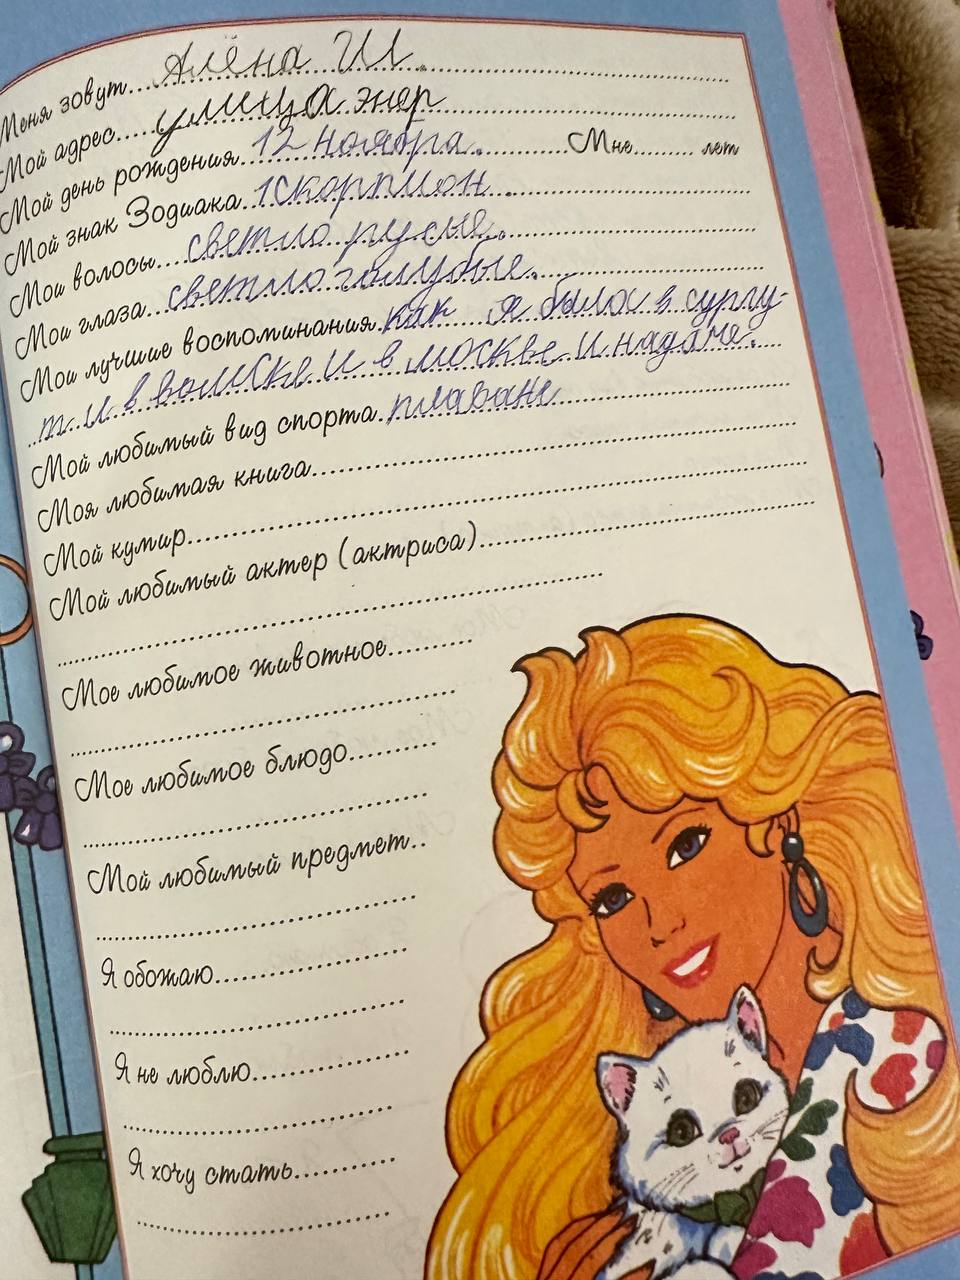 Меня зовут Алёна Ш.
Мой адрес улица энер
Мой день рождения 12 ноября. Мне лет
Мой знак Зодиака 1скорпион.
Мои волосы светло русые.
Мои глаза светло голубые.
Мои лучшие воспоминания как я была в сургу-
т и в волжске и в москве и на даче.
Мой любимый вид спорта плаване
Моя любимая книга
Мой кумир
Мой любимый актер (актриса)
Мое любимое животное
Мое любимое блюдо
Мой любимый предмет
Я обожаю
Я не люблю
Я хочу стать